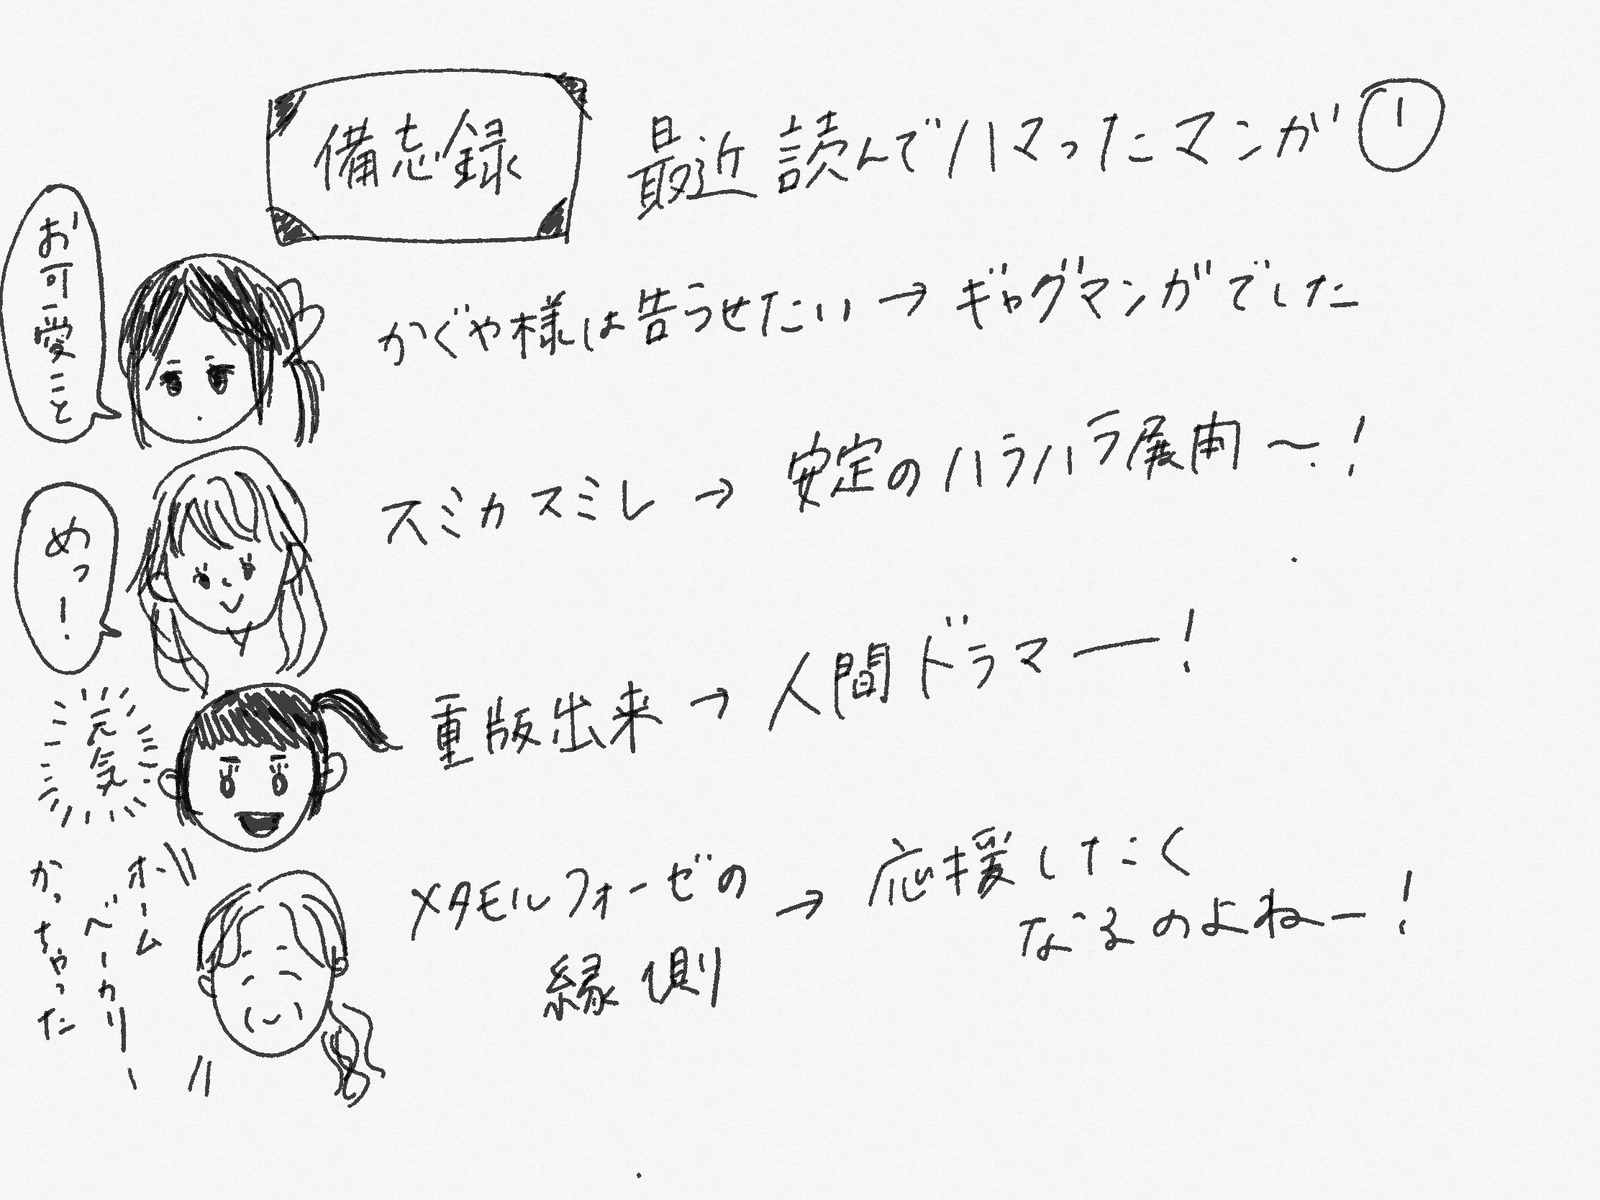 備忘録 最近読んでハマったマンガ①
お可愛こと
かぐや様は告らせたい → ギャグマンガでした
めっ!
スミカスミレ → 安定のハラハラ展開〜!
元気
重版出来 → 人間ドラマー!
ホームベーカリー
かっちゃった
メタモルフォーゼの
縁側
→ 応援したく
なるのよねー!